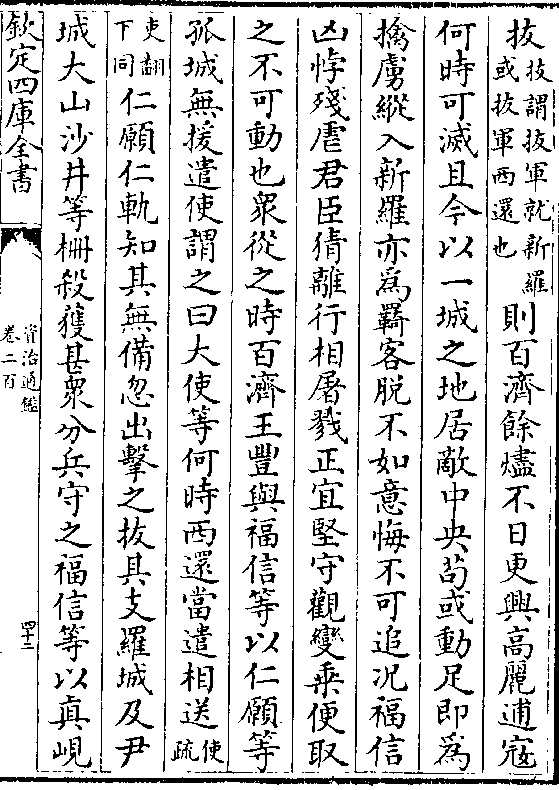 拔拔謂拔軍就新羅或拔軍西還也則百濟餘燼不日更興高麗逋寇
何時可滅且今以一城之地居敵中央茍或動足即為
擒虜縱入新羅亦為羇客脱不如意悔不可追况福信
凶悖殘虐君臣猜離行相屠戮正宜堅守觀變乗便取
之不可動也衆從之時百濟王豐與福信等以仁願等
孤城無援遣使謂之曰大使等何時西還當遣相送使疏
吏翻下同仁願仁軌知其無備忽出擊之拔其支羅城及尹
城大山沙井等柵殺獲甚衆分兵守之福信等以真峴
欽定四庫全書
資治通鑑
卷二百
四十二